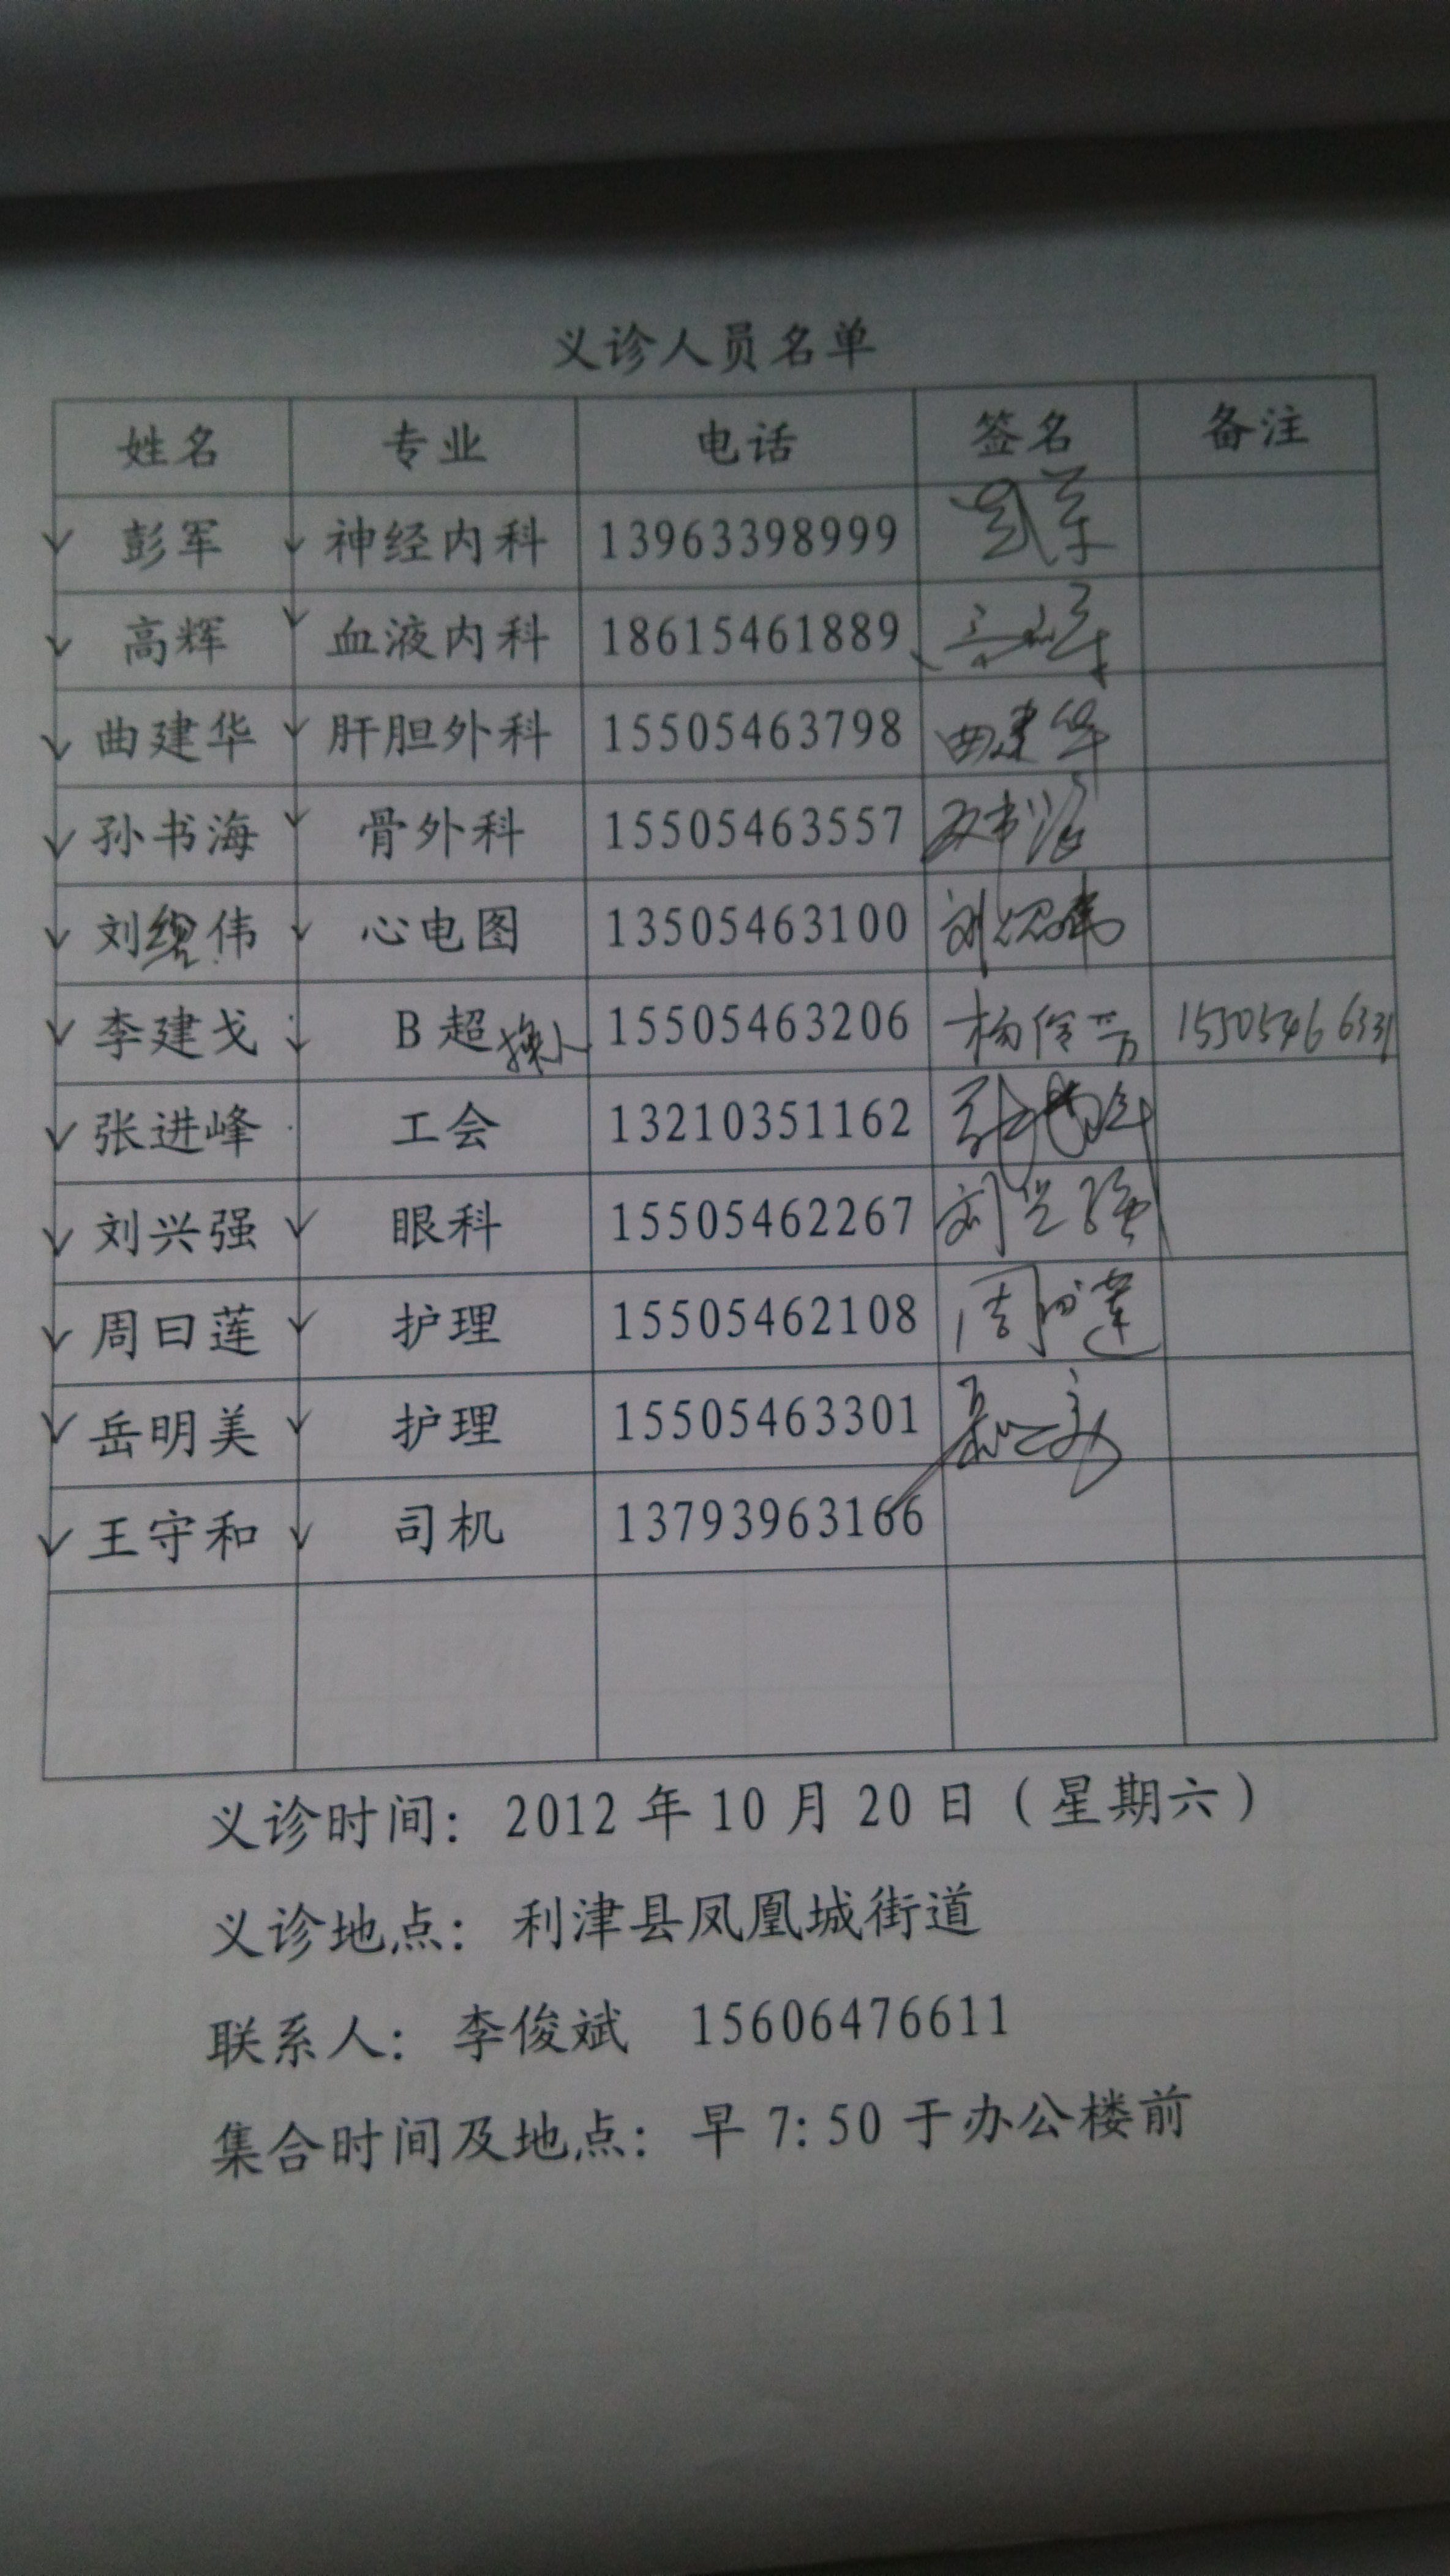 义诊人员名单
姓名 专业 电话 签名 备注
彭军 神经内科 13963398999 彭军
高辉 血液内科 18615461889 高辉
曲建华 肝胆外科 15505463798 曲建华
孙书海 骨外科 15505463557 孙书海
刘绍伟 心电图 13505463100 刘绍伟
李建戈 B超 换人 15505463206 杨伶芳 15505466331
张进峰 工会 13210351162
刘兴强 眼科 15505462267 刘兴强
周曰莲 护理 15505462108 周曰莲
岳明美 护理 15505463301
王守和 司机 13793963166
义诊时间：2012年10月20日（星期六）
义诊地点：利津县凤凰城街道
联系人：李俊斌 15606476611
集合时间及地点：早7:50于办公楼前